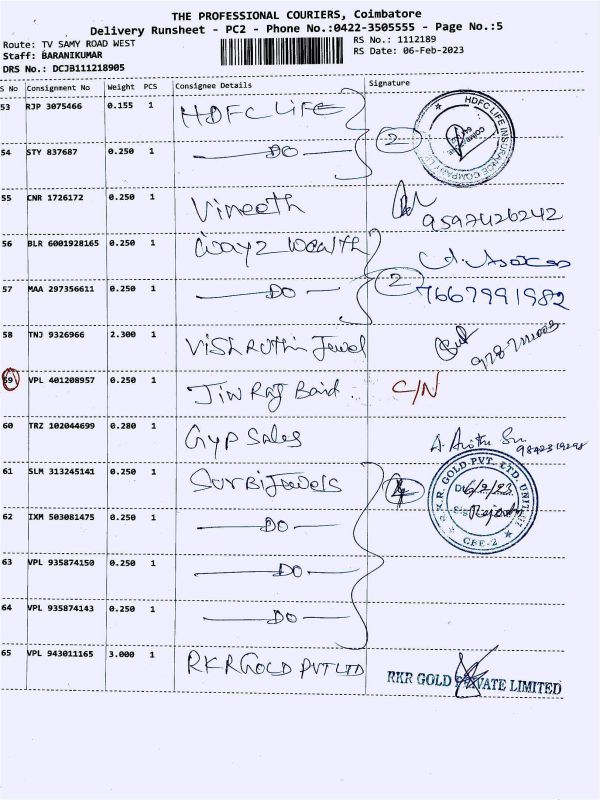 THE PROFESSIONAL COURIERS, Coimbatore
Delivery Runsheet - PC2 - Phone No.:0422-3505555 - Page No.:5
Route: TV SAMY ROAD WEST
Staff: BARANIKUMAR
DRS No.: DCJB111218905
RS No.: 1112189
RS Date: 06-Feb-2023
S No Consignment No Weight PCS Consignee Details Signature
53 RJP 3075466 0.155 1 HDFC LIFE
2
HDFC LIFE INSURANCE COMPANY
54 STY 837687 0.250 1 — DO —
55 CNR 1726172 0.250 1 Vineeth
9597426242
56 BLR 6001928165 0.250 1 Way2 Wealth
57 MAA 297356611 0.250 1 — DO — 2 7667991982
58 TNJ 9326966 2.300 1 Vishruthi Jewel
59 VPL 401208957 0.250 1 C/N
60 TRZ 102044699 0.280 1 Gyp Sales
61 SLM 313245141 0.250 1 Surbi Jewels 4
R.K.R. GOLD PVT. LTD. UNIT
6/2/23
CBE-2
62 IXM 503081475 0.250 1 — DO —
63 VPL 935874150 0.250 1 — DO —
64 VPL 935874143 0.250 1 — DO —
65 VPL 943011165 3.000 1 RKR GOLD PVT LTD
RKR GOLD PRIVATE LIMITED